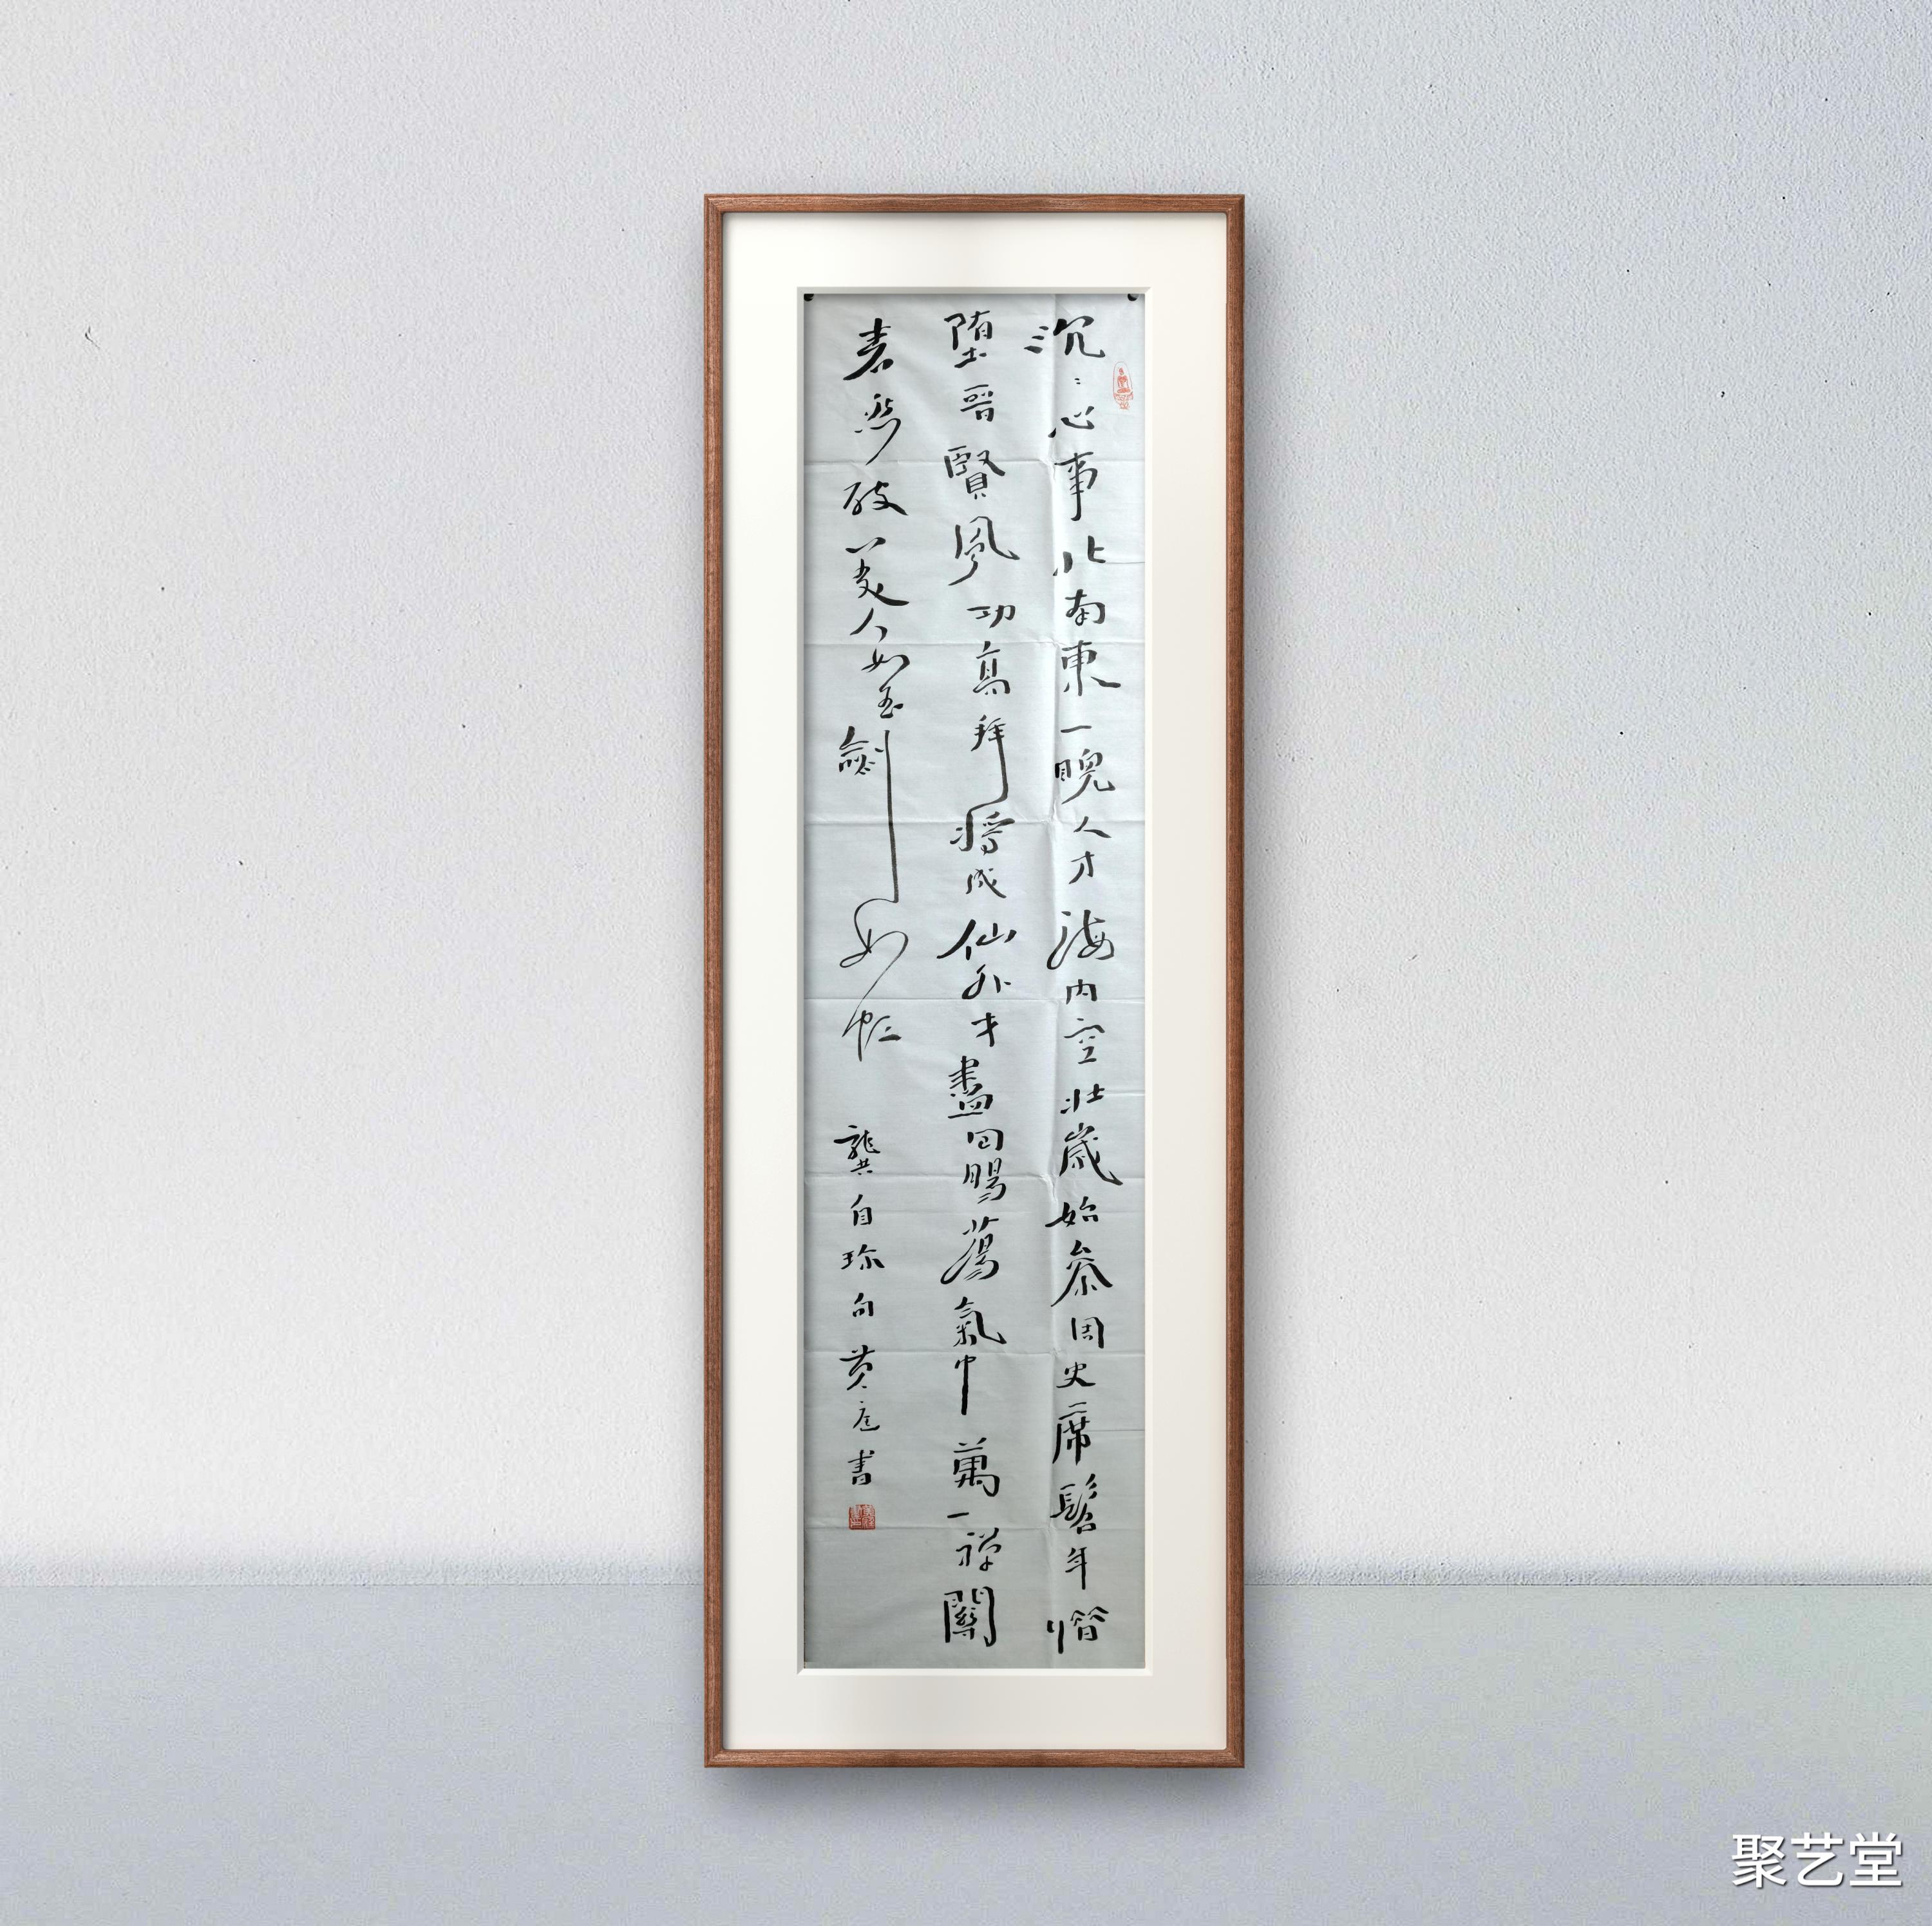 沉〻心事北南東一睨人才海内空壯歲始參周史席髫年惜
堕晉賢風功高拜將成仙外才盡回腸蕩氣中萬一禪關
砉然破美人如玉劍如虹
龔自珍句黄書
聚艺堂